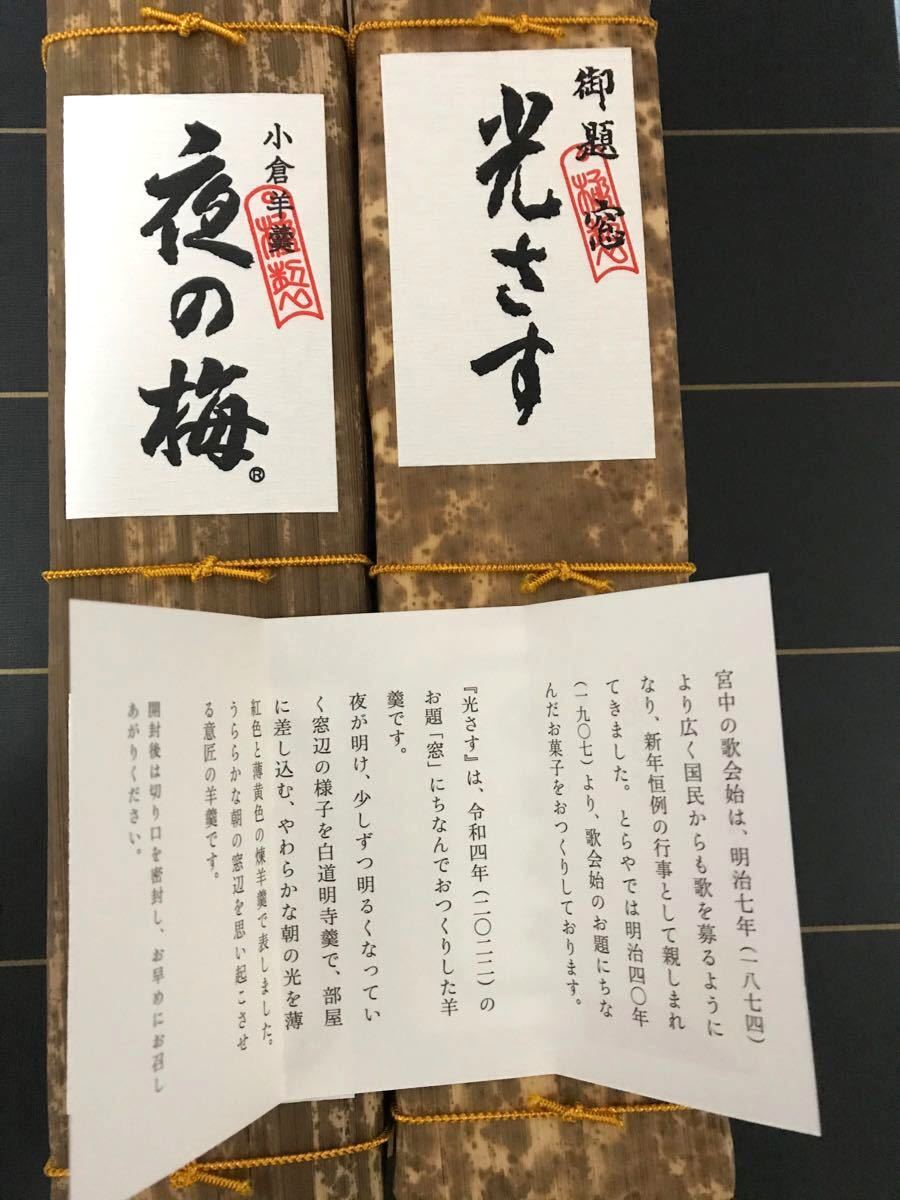 御題 窓
光さす
小倉羊羹
夜の梅
®
宮中の歌会始は、明治七年(一八七四)
より広く国民からも歌を募るように
なり、新年恒例の行事として親しまれ
てきました。とらやでは明治四〇年
(一九〇七)より、歌会始のお題にちな
んだお菓子をおつくりしております。
『光さす』は、令和四年(二〇二二)の
お題「窓」にちなんでおつくりした羊
羹です。
夜が明け、少しずつ明るくなってい
く窓辺の様子を白道明寺羹で、部屋
に差し込む、やわらかな朝の光を薄
紅色と薄黄色の煉羊羹で表しました。
うららかな朝の窓辺を思い起こさせ
る意匠の羊羹です。
開封後は切り口を密封し、お早めにお召し
あがりください。